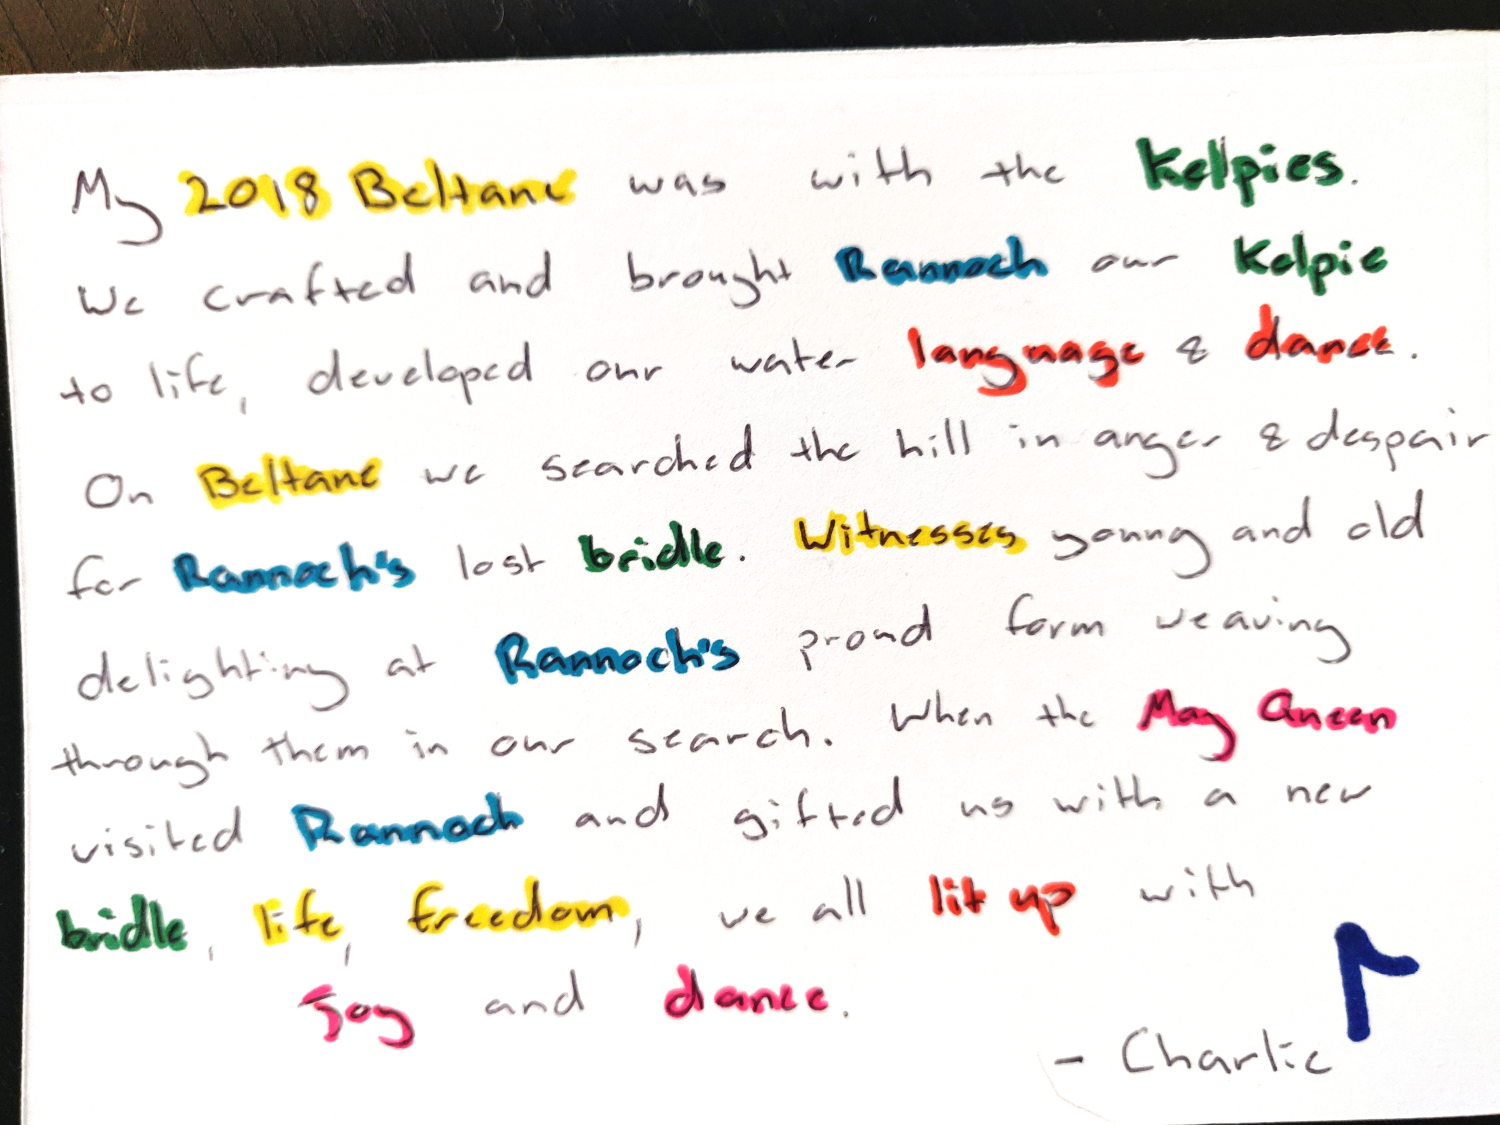 My 2018 Beltane was with the Kelpies.
We crafted and brought Rannoch our Kelpie
to life, developed our water language & dance.
On Beltane we searched the hill in anger & despair
for Rannoch's lost bridle. Witnesses young and old
delighting at Rannoch's proud form weaving
through them in our search. When the May Queen
visited Rannoch and gifted us with a new
bridle, life, freedom, we all lit up with
Joy and dance.
- Charlie